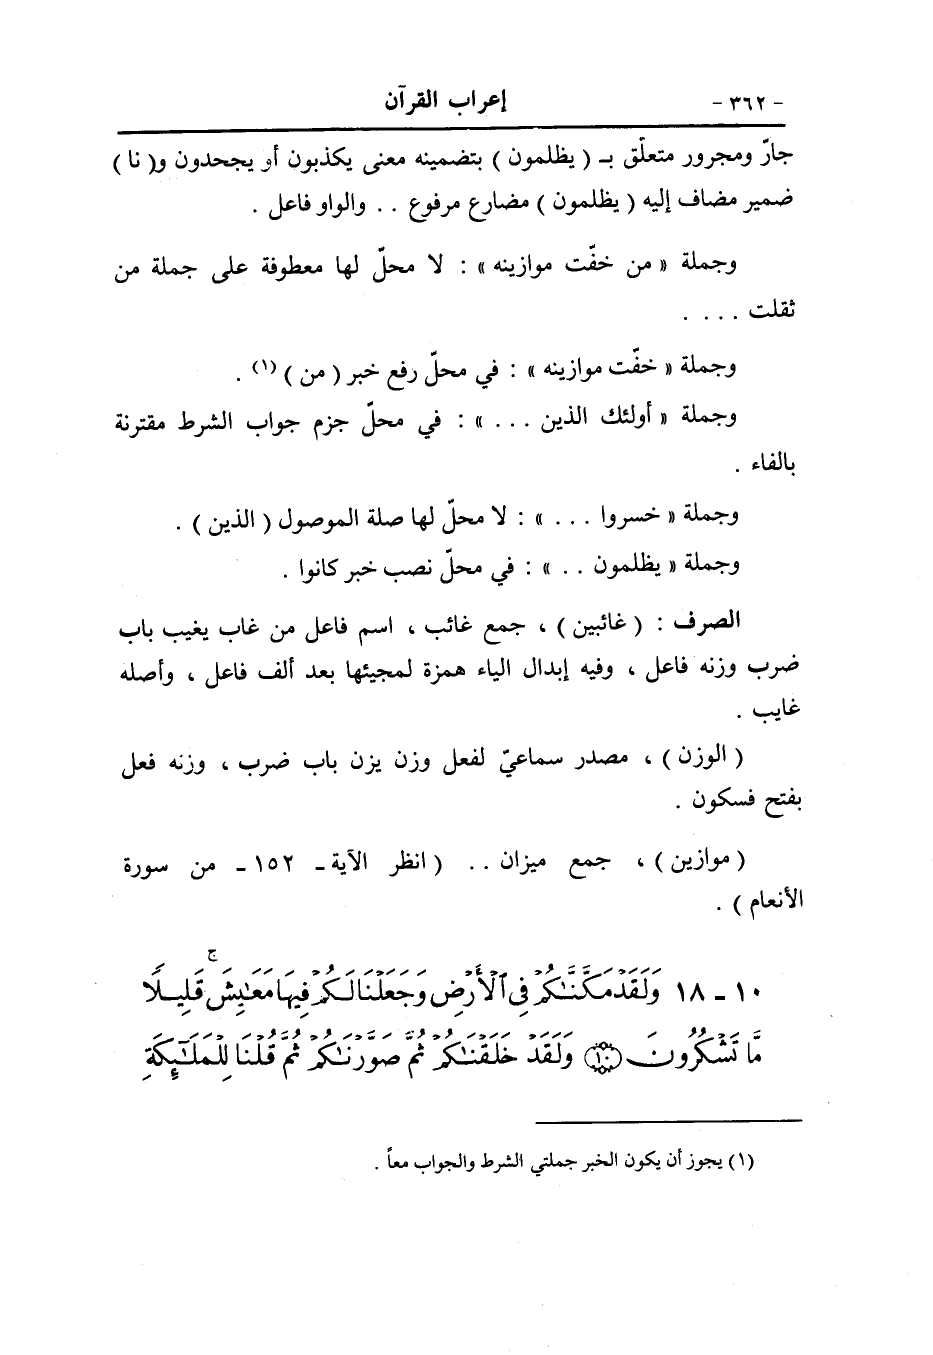 - ٣٦٢ - إعراب القرآن
جارّ ومجرور متعلّق بـ ( يظلمون ) بتضمينه معنى يكذبون أو يجحدون و( نا )
ضمير مضاف إليه ( يظلمون ) مضارع مرفوع . . والواو فاعل .
وجملة « من خفّت موازينه » : لا محلّ لها معطوفة على جملة من
ثقلت . . . .
وجملة « خفّت موازينه » : في محلّ رفع خبر ( من ) (١) .
وجملة « أولئك الذين . . . » : في محلّ جزم جواب الشرط مقترنة
بالفاء .
وجملة « خسروا . . . » : لا محلّ لها صلة الموصول ( الذين ) .
وجملة « يظلمون . . » : في محلّ نصب خبر كانوا .
الصرف : ( غائبين ) ، جمع غائب ، اسم فاعل من غاب يغيب باب
ضرب وزنه فاعل ، وفيه إبدال الياء همزة لمجيئها بعد ألف فاعل ، وأصله
غايب .
( الوزن ) ، مصدر سماعيّ لفعل وزن يزن باب ضرب ، وزنه فعل
بفتح فسكون .
( موازين ) ، جمع ميزان . . ( انظر الآية ـ ١٥٢ ـ من سورة
الأنعام ) .
١٠ - ١٨ وَلَقَدْ مَكَّنَّٰكُمْ فِى ٱلْأَرْضِ وَجَعَلْنَا لَكُمْ فِيهَا مَعَٰيِشَ ۚ قَلِيلًا
مَّا تَشْكُرُونَ ﴿١٠﴾ وَلَقَدْ خَلَقْنَٰكُمْ ثُمَّ صَوَّرْنَٰكُمْ ثُمَّ قُلْنَا لِلْمَلَٰٓئِكَةِ
(١) يجوز أن يكون الخبر جملتي الشرط والجواب معاً .